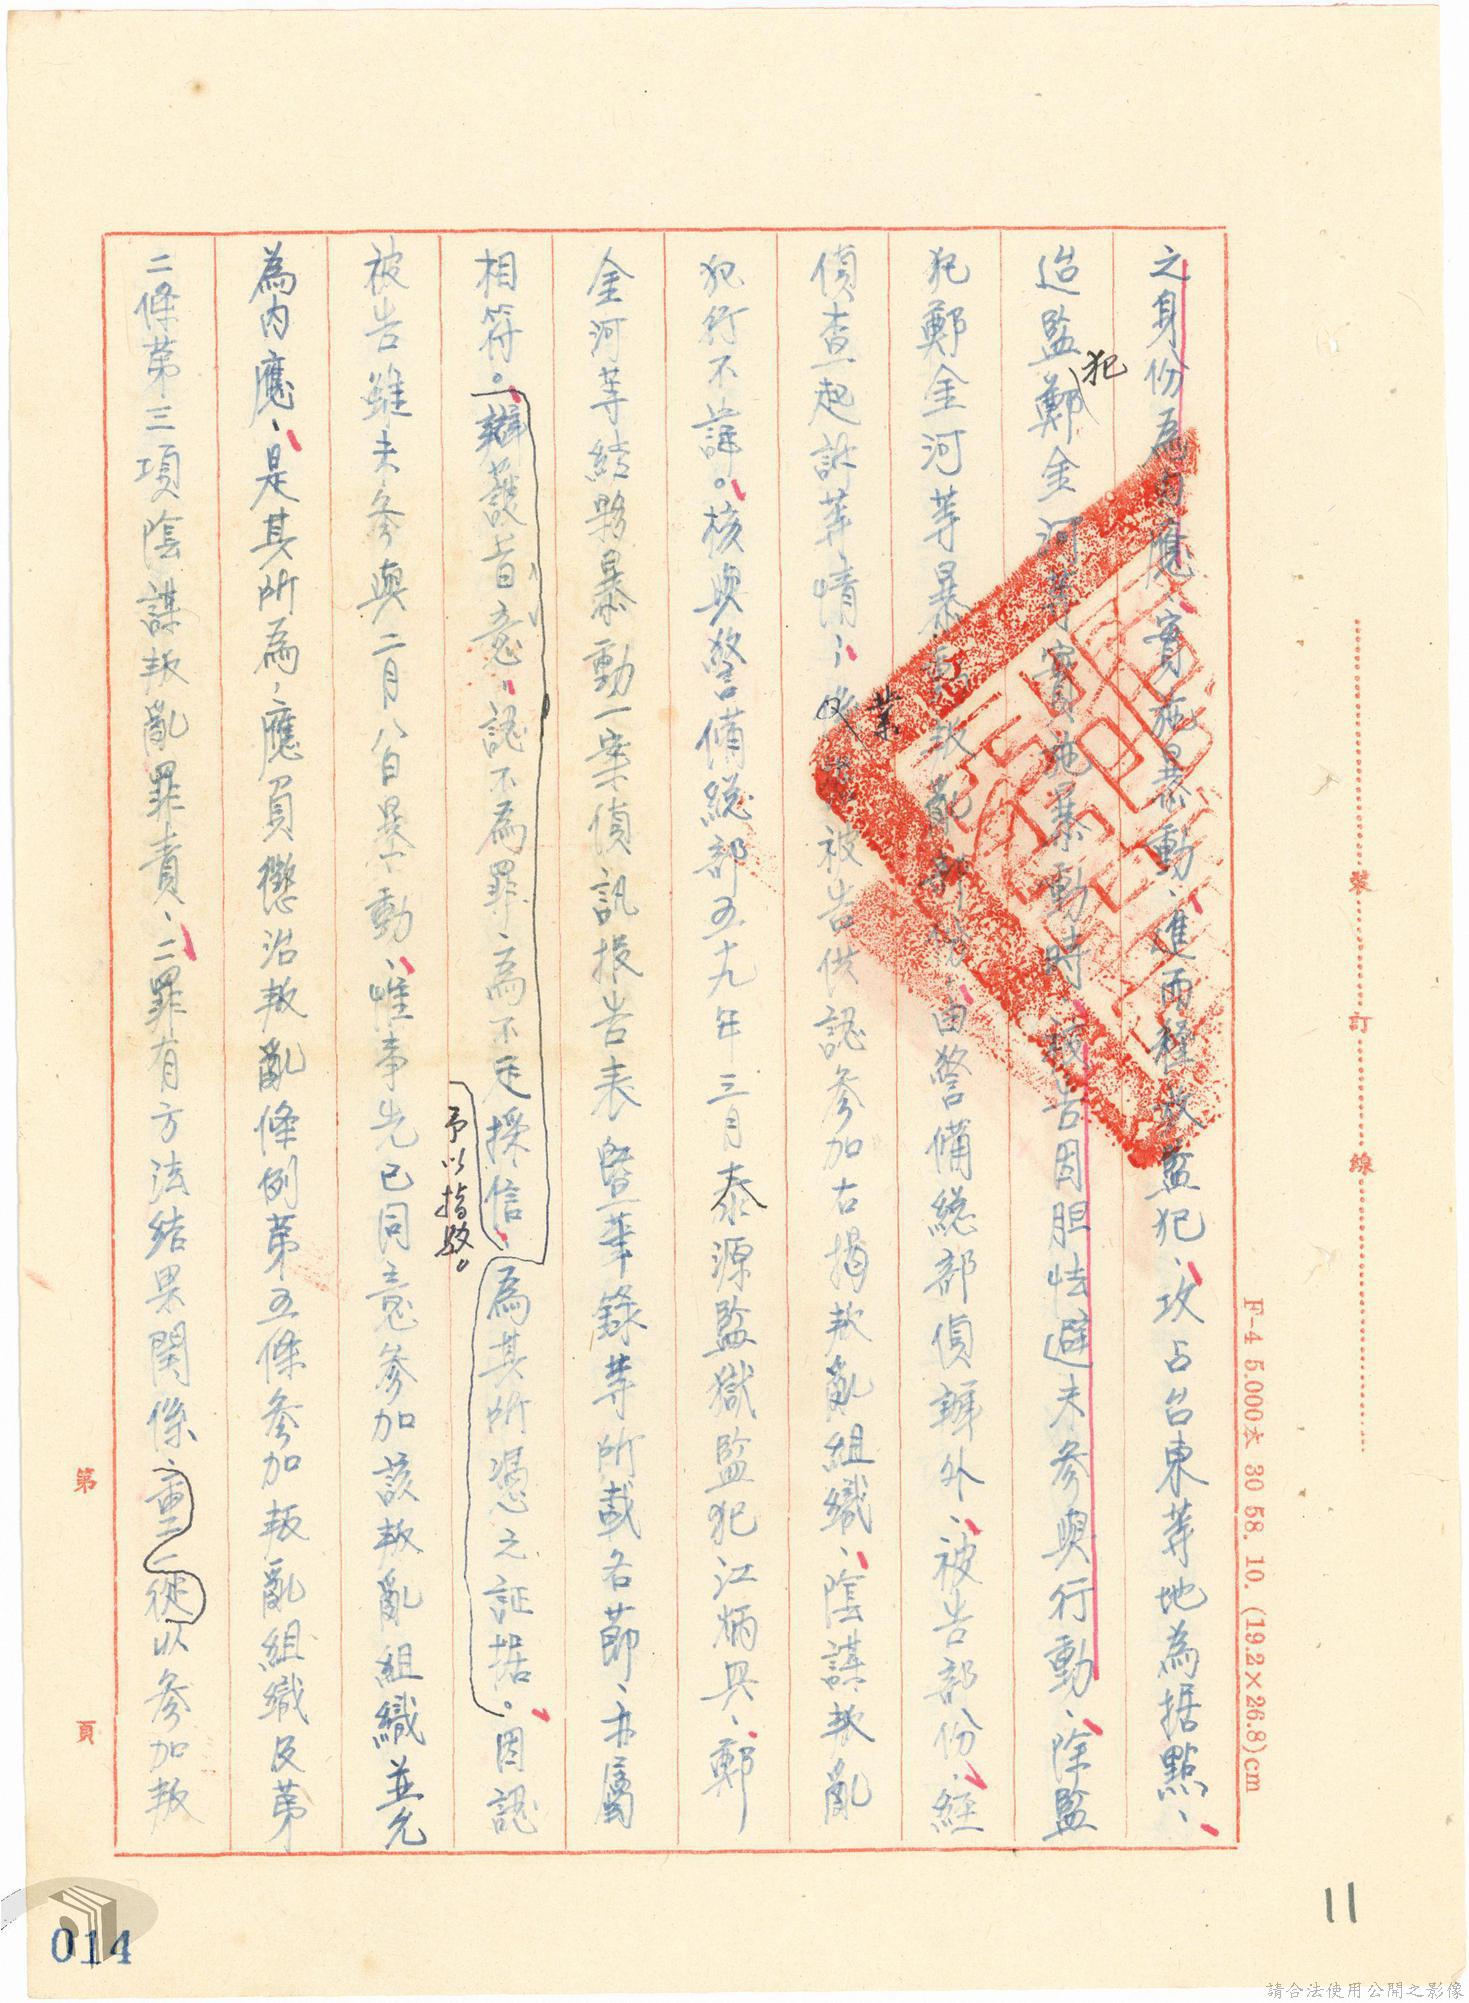 之身份為內應、實施暴動、進而釋放監犯、攻占台東等地為据點、
迨監犯鄭金河等實施暴動時、被告因胆怯避未參與行動、除監
犯鄭金河等暴動叛亂部份、由警備總部偵辦外、被告部份、經
偵查起訴等情、業據被告供認參加右揭叛亂組織、陰謀叛亂
犯行不諱。核與警備總部五十九年三月泰源監獄監犯江炳興、鄭
金河等結夥暴動一案偵訊報告表暨筆錄等所載各節、亦屬
相符。為其所憑之証据。辯護旨意、認不為罪、為不足採信、予以指駁。因認
被告雖未參與二月八日暴動、惟事先已同意參加該叛亂組織並允
為內應、是其所為、應負懲治叛亂條例第五條參加叛亂組織及第
二條第三項陰謀叛亂罪責、二罪有方法結果關係、從一重以參加叛
裝
訂
線
F-4 5.000本 30 58. 10. (19.2×26.8)cm
第
頁
11
014
請合法使用公開之影像